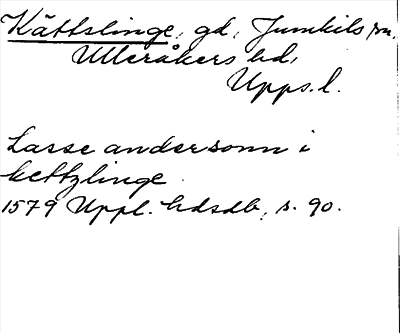 Kättslinge, gd, Jumkils sn,
Ulleråkers hd,
Upps. l.
Lasse andersonn i
kettzlinge
1579 Uppl. hdsdb, s. 90.